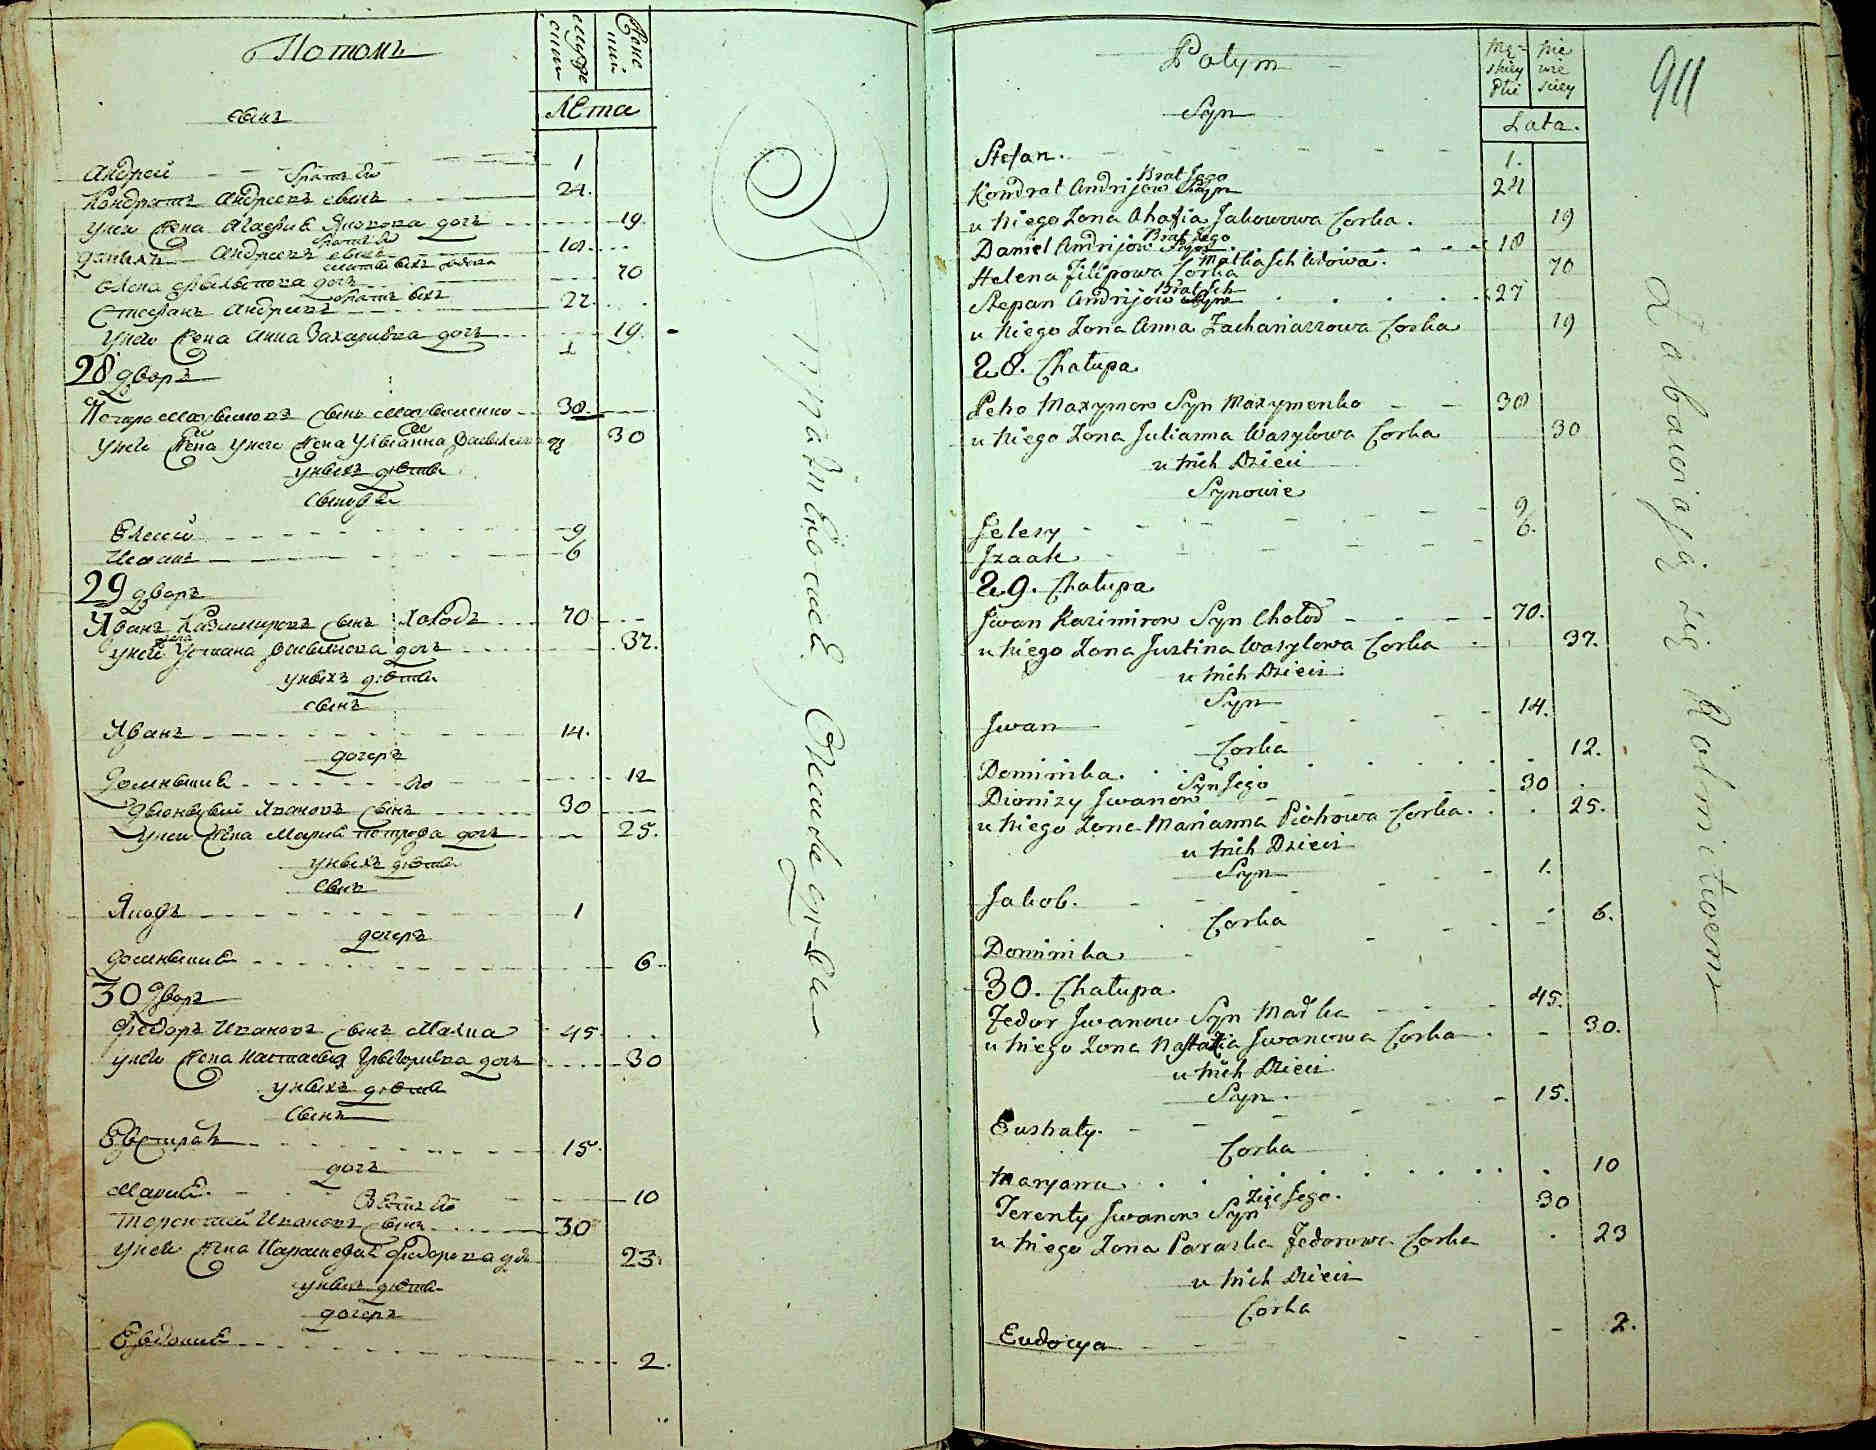 Потомъ
мужеска
женска
Лѣта
сынъ
Андрей 1
братъ его
Кондратъ Андреевъ сынъ 24.
у него жена Агафия Яковова дочь 19.
братъ его
Данилъ Андреевъ сынъ 18.
матка ихъ вдова
Елена Филипова дочь 70
братъ ихъ
Стефанъ Андреевъ 27.
у него жена Анна Захариева дочь 19.
28 дворъ
Максимовъ сынъ Максименко 38.
у него жена Улианна Василева 30
у нихъ дѣти
сынове
Елесей 9
Исаакъ 6
29 дворъ
Иванъ Казимировъ сынъ Холодъ 70
жена
у него Устина Василиова дочь 37.
у нихъ дѣти
сынъ
Иванъ 14.
дочеръ
Доминикия 12
его
Дионизий Ивановъ сынъ 30
у него жена Мария Петрова дочь 25.
у нихъ дѣти
сынъ
Якобъ 1
дочеръ
Доминикия 6
30 дворъ
Федоръ Ивановъ сынъ Малка 45
у него жена Настасия Григориева дочь 30
у нихъ дѣти
сынъ
Евстратъ 15
дочъ
Мария 10
зять его
Терентий Ивановъ сынъ 30
у него жена Параскевия Федорова 23.
у нихъ дѣти
дочеръ
Евдокия 2.
Potym
męskiey płci
niewieściey
Lata.
911
Syn
Stefan. 1.
Brat Jego
Kondrat Andrijow Syn 24
u niego Zona Ahafia Jakowowa Corka. 19
Brat Jego
Daniel Andrijow Syn 18
Matka Jch Wdowa.
Helena Filipowa Corka 70
Brat Jch
Stepan Andrijow Syn 27
u niego Zona Anna Zachariaszowa Corka 19
28. Chałupa
Peho Maxymow Syn Maxymenko 38
u niego Zona Julianna Wasylowa Corka 30
u nich Dzieci
Synowie
Jelesy 9
Jzaak 6.
29. Chałupa
Jwan Kazimirow Syn Chołod 70.
u niego Zona Justina Wasylowa Corka 37.
u nich Dzieci
Syn
Jwan 14.
Corka
Dominika. 12.
Syn Jego
Dionizy Jwanow 30
u niego Zona Marianna Piotrowa Corka. 25.
u nich Dzieci
Syn
Jakob. 1.
Corka
Dominika 6.
30. Chałupa
Fedor Jwanow Syn Małka 45.
u niego Zona Nastazia Jwanowa Corka 30.
u nich Dzieci
Syn
Eustaty. 15.
Corka
Maryanna 10
Zięć Jego.
Terenty Jwanow Syn 30
u niego Zona Paraska Fedorowa Corka 23
u nich Dzieci
Corka
Eudocya 2.